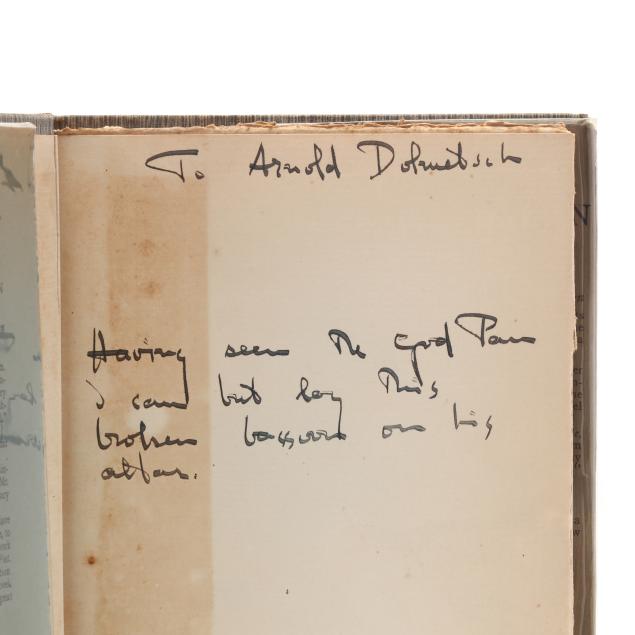 To Arnold Dolmetsch
Having seen the god Pan
I can but lay this
broken bassoon on his
altar.
N